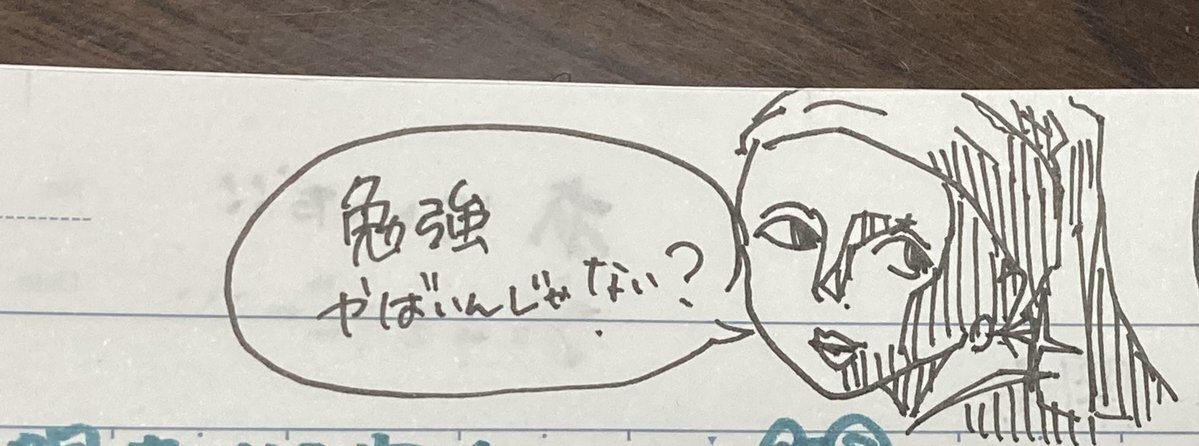 勉強
やばいんじゃない?